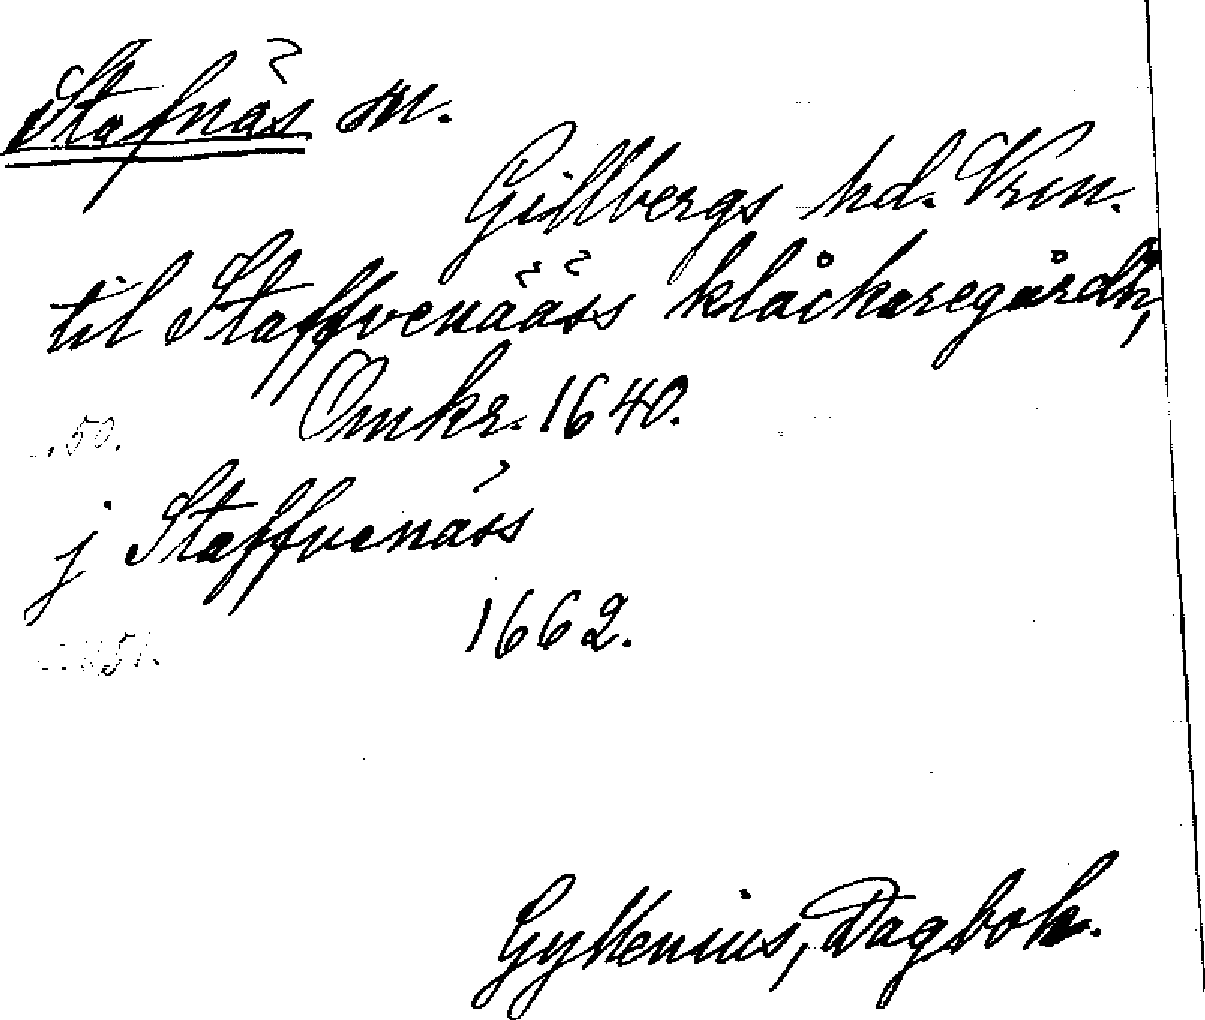 Stafnäs sn.
Gillbergs hd. Vrm.
til Staffvenääss klåckaregårdh,
Omkr. 1640.
50.
j Staffvenäss
1662.
51.
Gyllenius, Dagbok.